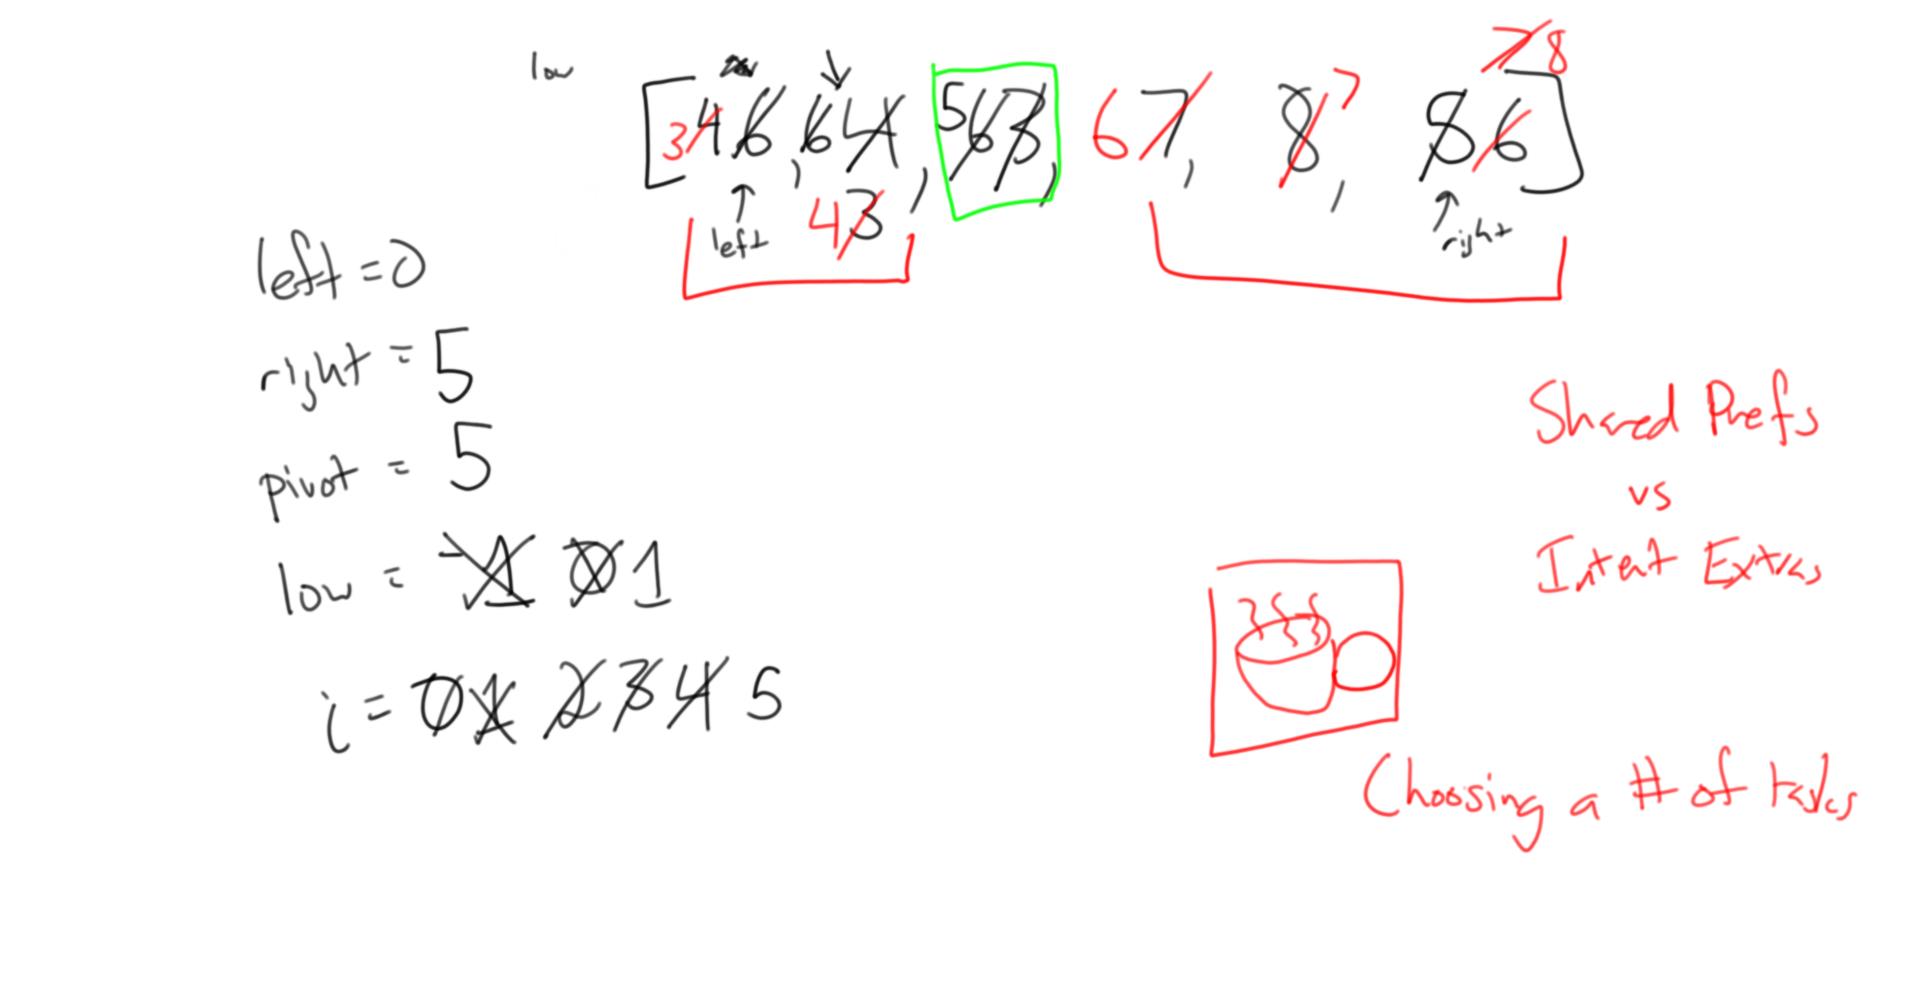 low
7 8
[ 3 4 6 , 6 4 , 5 6 3 , 6 7 , 8 7 , 8 6 ]
4 3
left
right
left = 0
right = 5
pivot = 5
low = -1 0 1
i = 0 1 2 3 4 5
Shared Prefs
vs
Intent Extras
Choosing a # of tasks